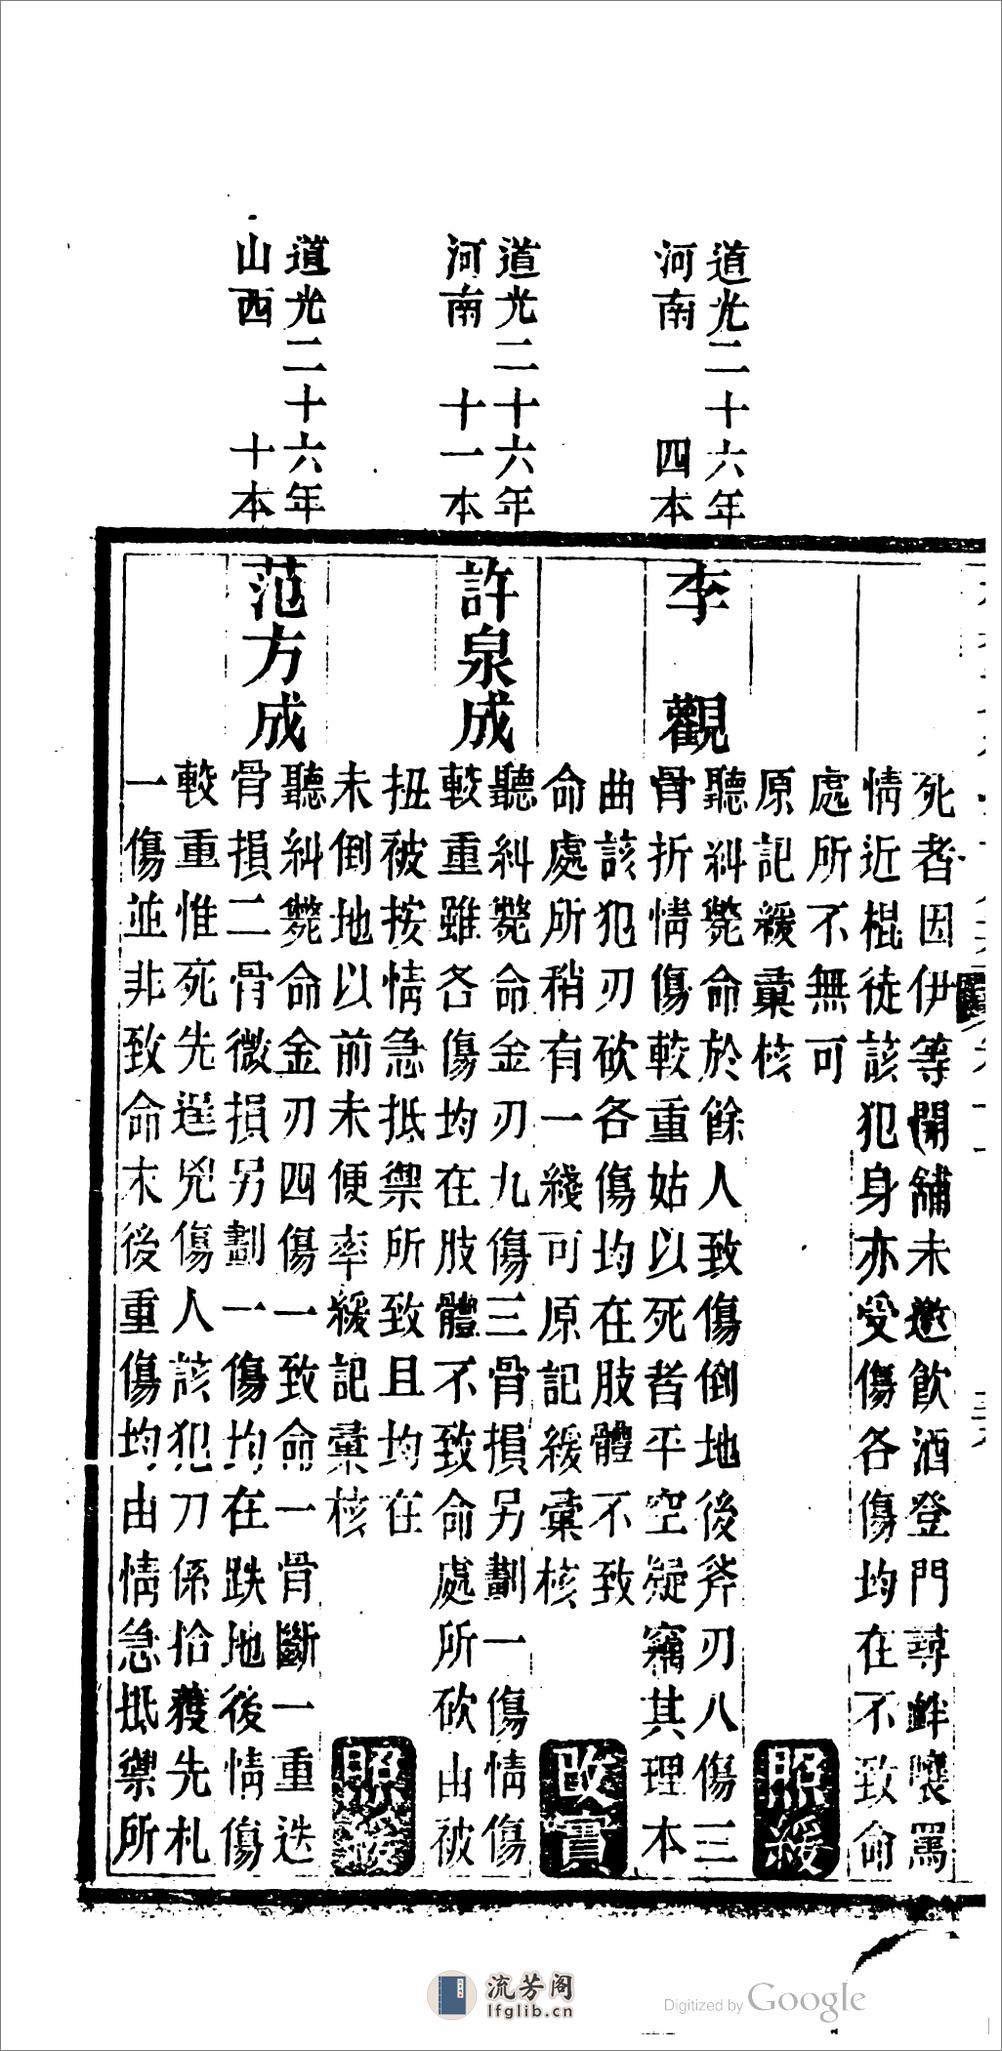 死者因伊等開舖未邀飲酒登門尋衅嚷罵
情近棍徒該犯身亦受傷各傷均在不致命
處所不無可
原記緩彙核
照緩
道光二十六年
河南 四本
李觀
聽糾斃命於餘人致傷倒地後斧刃八傷三
骨折情傷較重姑以死者平空疑竊其理本
曲該犯刃砍各傷均在肢體不致
命處所稍有一綫可原記緩彙核
改實
道光二十六年
河南 十一本
許泉成
聽糾斃命金刃九傷三骨損另劃一傷情傷
較重雖各傷均在肢體不致命處所砍由被
扭被按情急抵禦所致且均在
未倒地以前未便率緩記彙核
照緩
道光二十六年
山西 十本
范方成
聽糾斃命金刃四傷一致命一骨斷一重迭
骨損二骨微損另劃一傷均在跌地後情傷
較重惟死先逞兇傷人該犯刀係拾獲先札
一傷並非致命末後重傷均由情急抵禦所
流芳阁
lfglib.cn
Digitized by Google